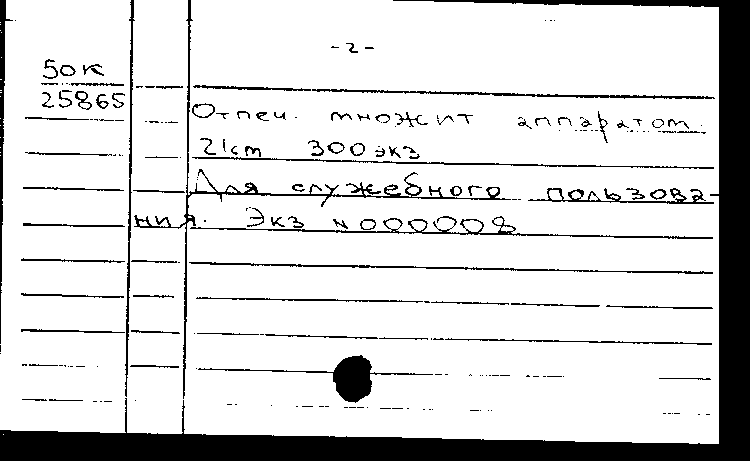 -2-
50к
25865
Отпеч. множит аппаратом.
21cm 300 экз
Для служебного пользова-
ния. Экз N 000008